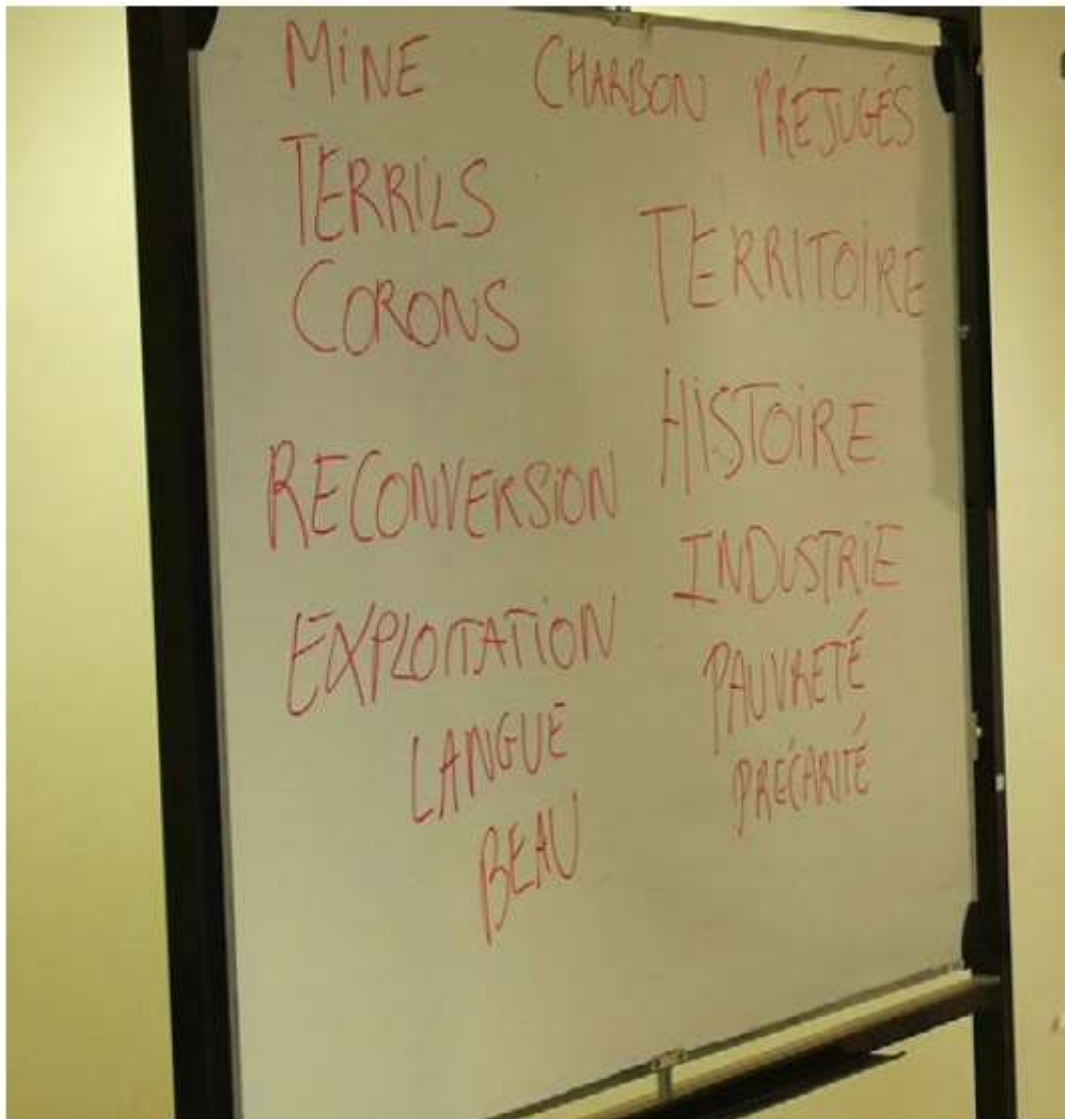 MiNE CHARBON PRÉJUGÉS
TERRiLS
TERRITOiRE
CORONS
HISTOiRE
RECONVERSiON
INDUSTRiE
EXPLOITATiON
PAUVRETÉ
LANGUE
PRÉCARITÉ
BEAU